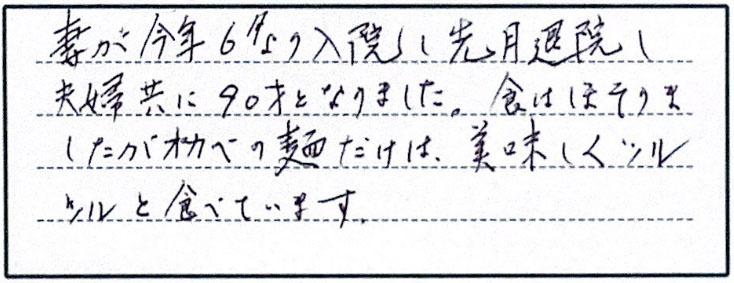 妻が今年6月より入院し先月退院し
夫婦共に90才となりました。食はほそりま
したがオカベの麺だけは、美味しくツル
ツルと食べています。